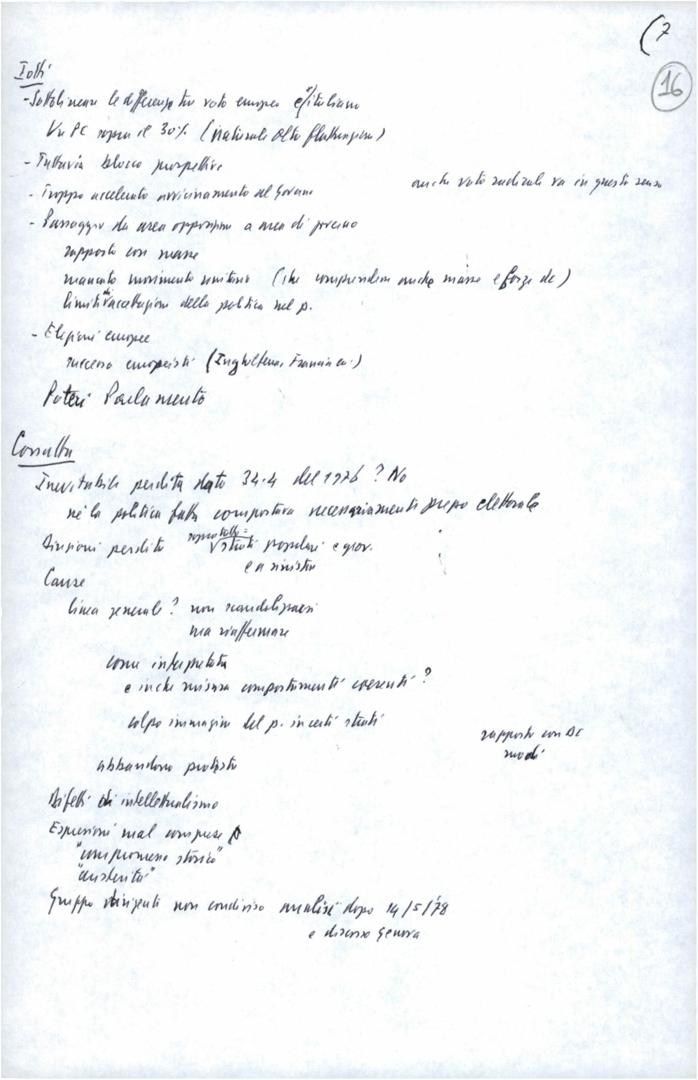 (7
16
Iotti
- Sottolineare le differenze tra voto europeo e italiano
Un PC sopra il 30% (naturale oltre fluttuazioni)
- Tuttavia blocco prospettive
anche voto radicali va in questo senso
- Troppo accelerato avvicinamento al Governo
- Passaggio da area opposizione a area di governo
rapporto con masse
mancato movimento unitario (che comprendesse anche masse e forze dc)
limiti di accettazione della politica nel p.
- Elezioni europee
successo europeisti (Inghilterra, Francia)
Poteri Parlamento
Consulta
Inevitabile perdita dato 34.4 del 1976? No
né la politica fatta comportava necessariamente prezzo elettorale
Dimensioni perdite soprattutto strati popolari e giov.
e a sinistra
Cause
linea generale? non scandalizzarsi
ma riaffermare
come interpretata
e in che misura comportamenti coerenti?
colpo immagine del p. in certi strati
rapporto con DC
modi
abbandono protesta
Difetti di intellettualismo
Espressioni mal comprese
"compromesso storico"
"austerità"
Gruppo dirigenti non condiviso analisi dopo 14/5/78
e discorso Genova